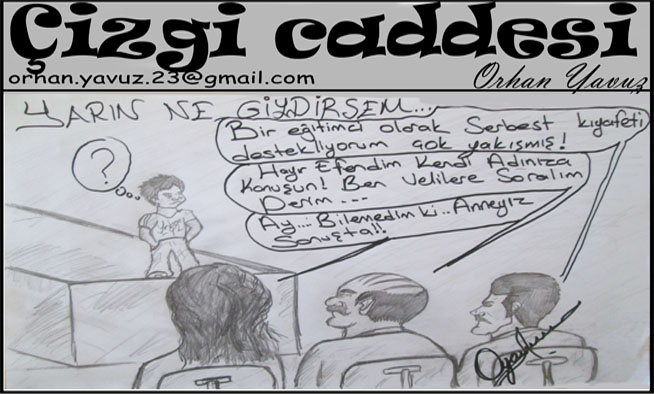 Çizgi caddesi
orhan.yavuz.23@gmail.com
Orhan Yavuz
YARIN NE GİYDİRSEM...
Bir eğitimci olarak Serbest kıyafeti
destekliyorum çok yakışmış!
Hayır Efendim Kendi Adınıza
Konuşun! Ben Velilere Soralım
Derim...
Ay... Bilemedim ki.. Anneyiz
Sonuçta!!
?